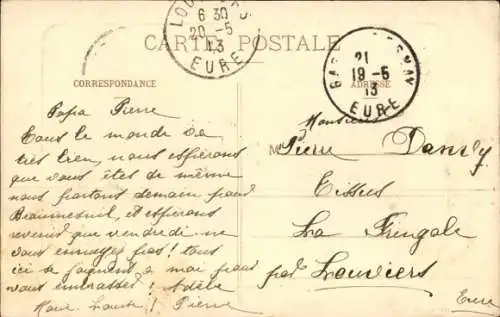 CARTE POSTALE
CORRESPONDANCE
ADRESSE
6 30
20 -5
13
EURE
21
19 -5
13
EURE
Papa Pierre
Tous le monde va
très bien, nous espérons
que vous êtes de même
nous partons demain pour
Beaumesnil, et espérons
revenir que vendredi ne
vous ennuyez pas! tous
ici se joignent a moi pour
vous embrasser! Adèle
Pierre
Monsieur
M
Pierre Danvy
Tissus
La Fringale
par Louviers
Eure